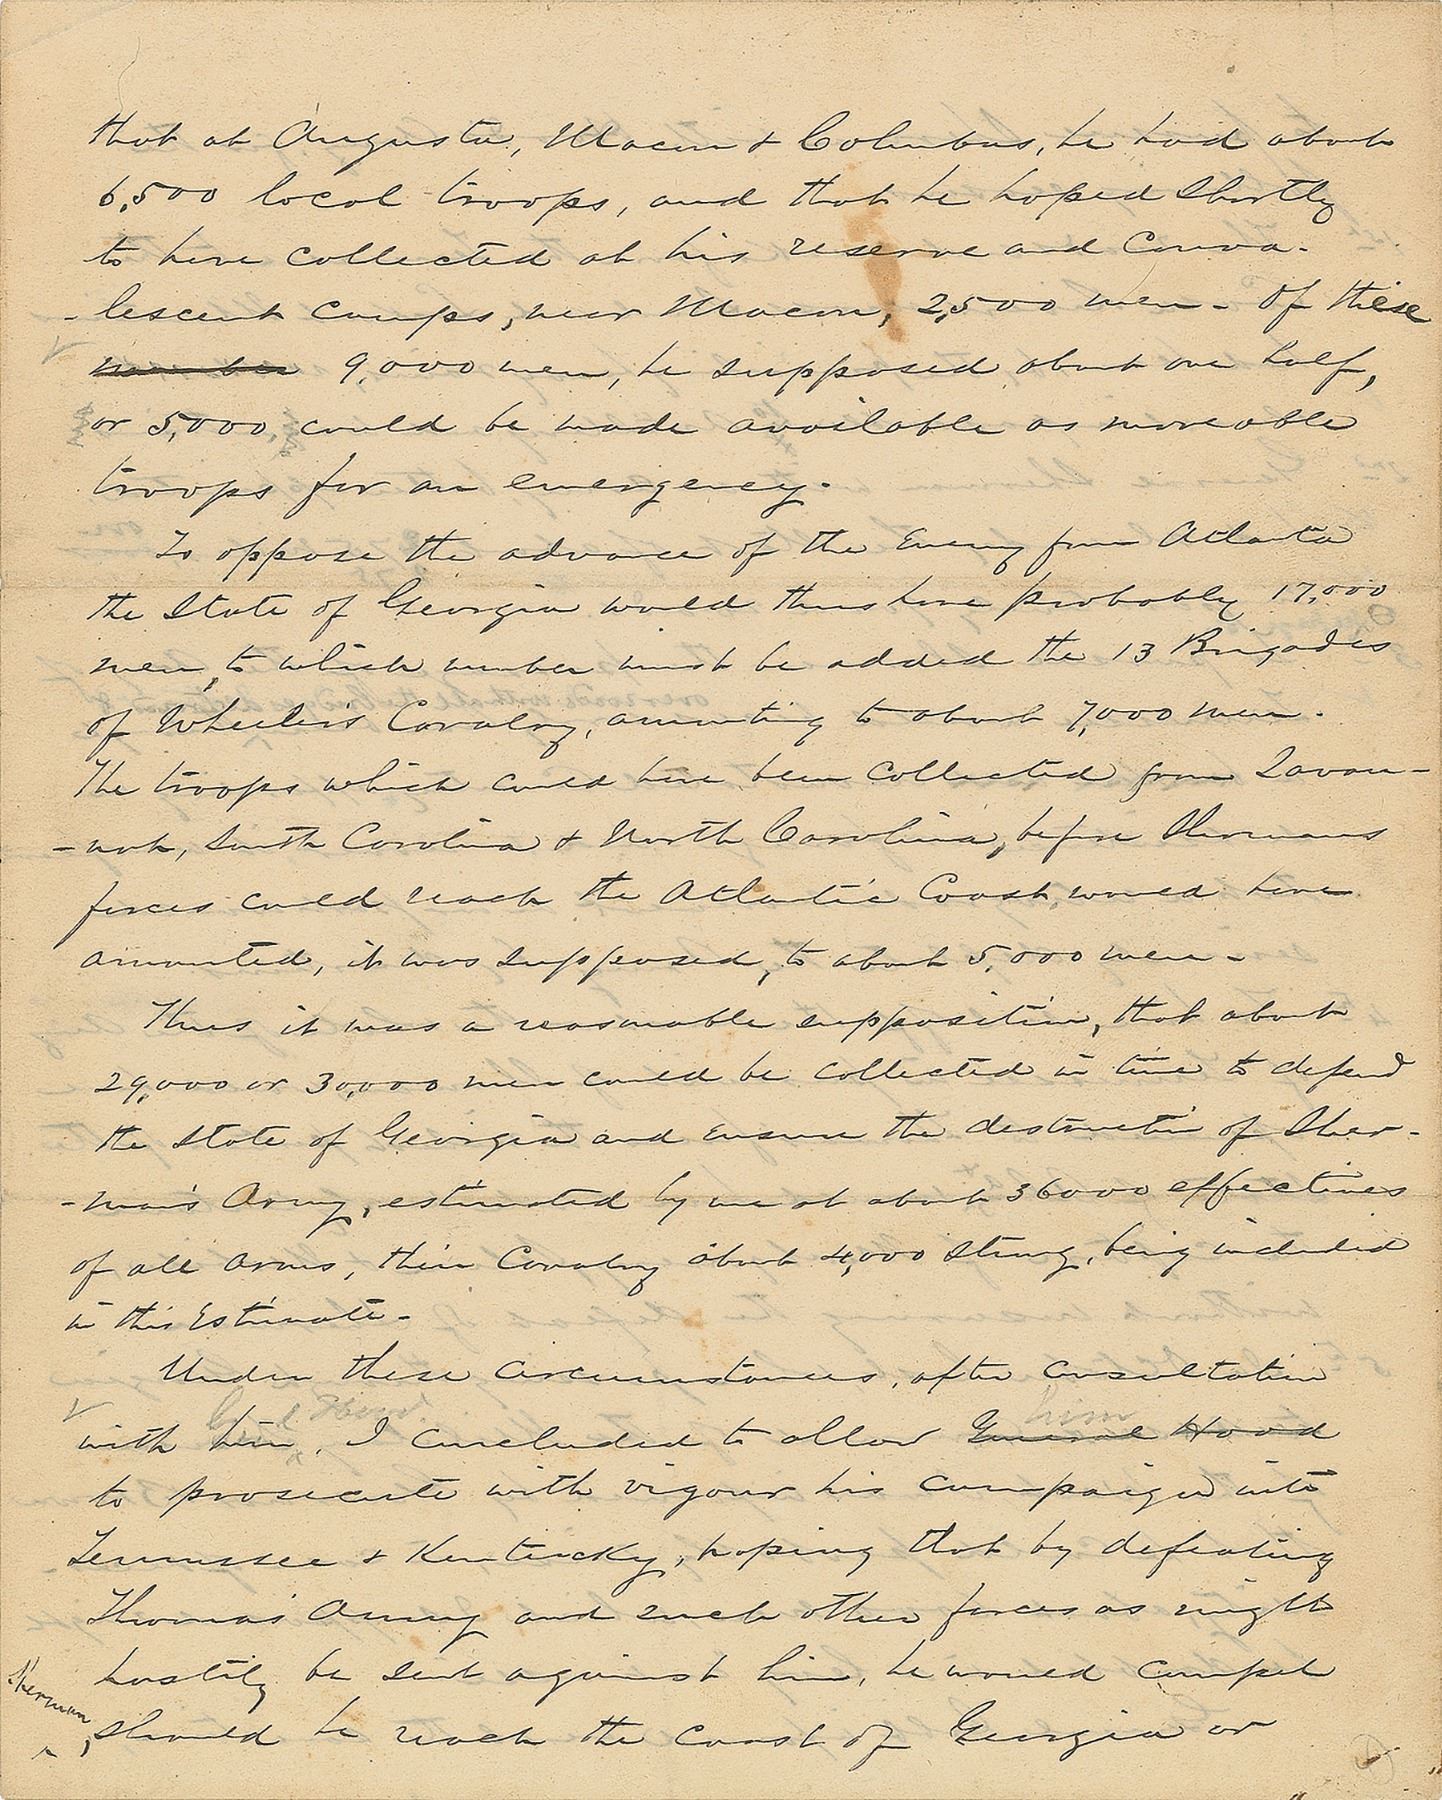 that at Augusta, Macon & Columbus, he had about
6,500 local troops, and that he hoped shortly
to have collected at his reserve and Conva-
-lescent Camps, near Macon, 2,500 men - Of these
number 9,000 men, he supposed about one half,
or 5,000, could be made available as moveable
troops for an emergency.
To oppose the advance of the Enemy from Atlanta
the State of Georgia would thus have probably 17,000
men, to which number must be added the 13 Brigades
of Wheeler's Cavalry, amounting to about 7,000 men.
The troops which could have been collected from Savan-
-nah, South Carolina & North Carolina, before Shermans
forces could reach the Atlantic Coast, would have
amounted, it was supposed, to about 5,000 men -
Thus it was a reasonable supposition, that about
29,000 or 30,000 men could be collected in time to defend
the State of Georgia and ensure the destruction of Sher-
-man's Army, estimated by me at about 36000 effectives
of all arms, their Cavalry about 4,000 strong, being included
in this Estimate -
Under these circumstances, after consultation
Genl Hood him
with him, I concluded to allow General Hood
to prosecute with vigour his campaign into
Tennessee & Kentucky, hoping that by defeating
Thomas's Army and such other forces as might
hastily be sent against him, he would compel
Sherman,
should he reach the coast of Georgia or